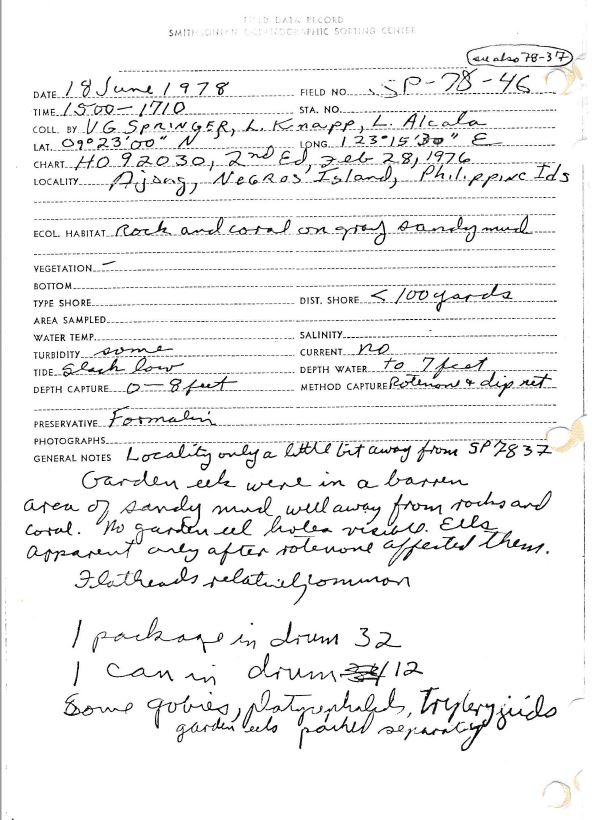 FIELD DATA RECORD
SMITHSONIAN OCEANOGRAPHIC SORTING CENTER
see also 78-37
DATE 18 June 1978 FIELD NO. SP-78-46
TIME 1500-1710 STA. NO.
COLL. BY VG SPRINGER, L. Knapp, L. Alcala
LAT. 09°23'00" N LONG. 123°15'30" E
CHART HO 92030, 2nd Ed, Feb 28, 1976
LOCALITY Ajong, NEGROS Island, Philippine Ids
ECOL. HABITAT Rock and coral on gray sandy mud
VEGETATION —
BOTTOM
TYPE SHORE DIST. SHORE < 100 yards
AREA SAMPLED
WATER TEMP. SALINITY
TURBIDITY some CURRENT no
TIDE Slack low DEPTH WATER to 7 feet
DEPTH CAPTURE 0-8 feet METHOD CAPTURE Rotenone & dip net
PRESERVATIVE Formalin
PHOTOGRAPHS
GENERAL NOTES Locality only a little bit away from SP7837
Garden eels were in a barren
area of sandy mud, well away from rocks and
coral. No garden eel holes visible. Eels
apparent only after rotenone affected them.
Flatheads relatively common
1 package in drum 32
1 can in drum 12
Some gobies, platycephalids, Trypterygiids
garden eels packed separately